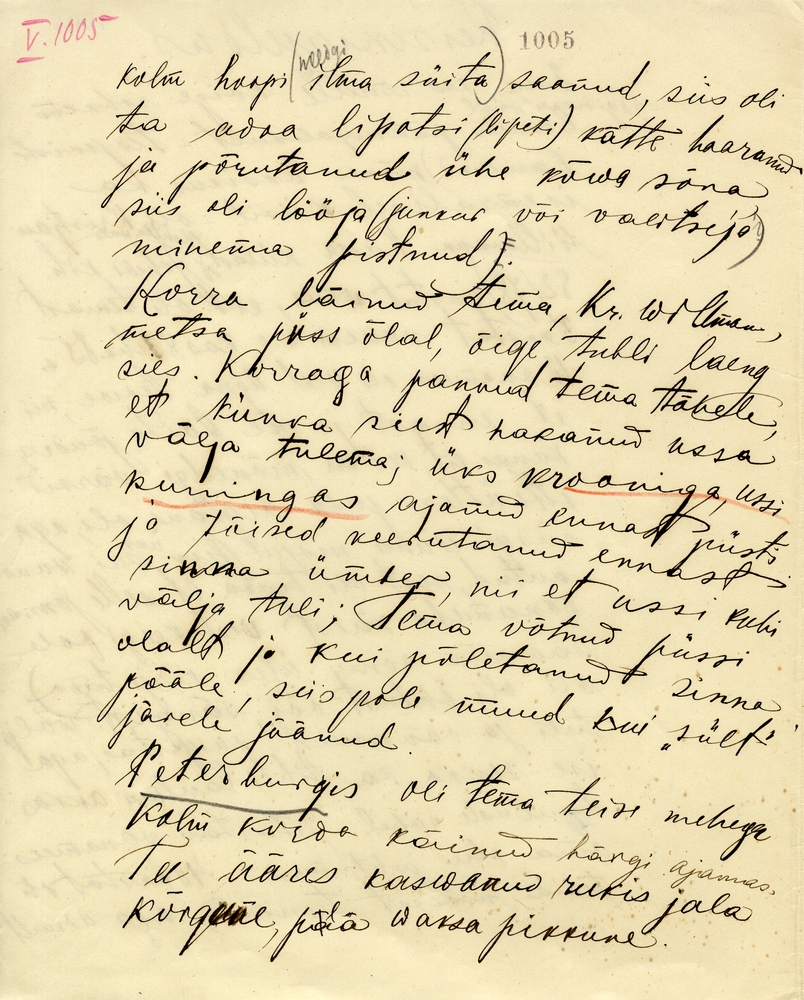 V. 1005
1005
kolm hoopi (ilma süita) saanud, siis oli
ta adra lipatsi (lipeti) kätte haaranud
ja põrutanud ühe kõwa sõna
siis oli lööja (junkur või valitseja)
minema pistnud).
Korra läinud tema, Kr. Willman,
metsa püss õlal, õige tubli laeng
sies. Korraga pannud tema tähele,
et künka seest hakanud ussa
välja tulema; üks krooniga, ussi
kuningas ajanud ennast püsti
ja tõised keerutanud ennast
sinna ümber, nii et ussi kuhi
välja tuli; Tema võtnud püssi
olalt ja kui põletanud sinna
pääle, siis pole muud kui „sült"
järele jäänud.
Peterburgis oli tema teise mehega
kolm korda käinud härgi ajamas.
Tee ääres kaswanud rukis jala
kõrgune, pää waksa pikkune.